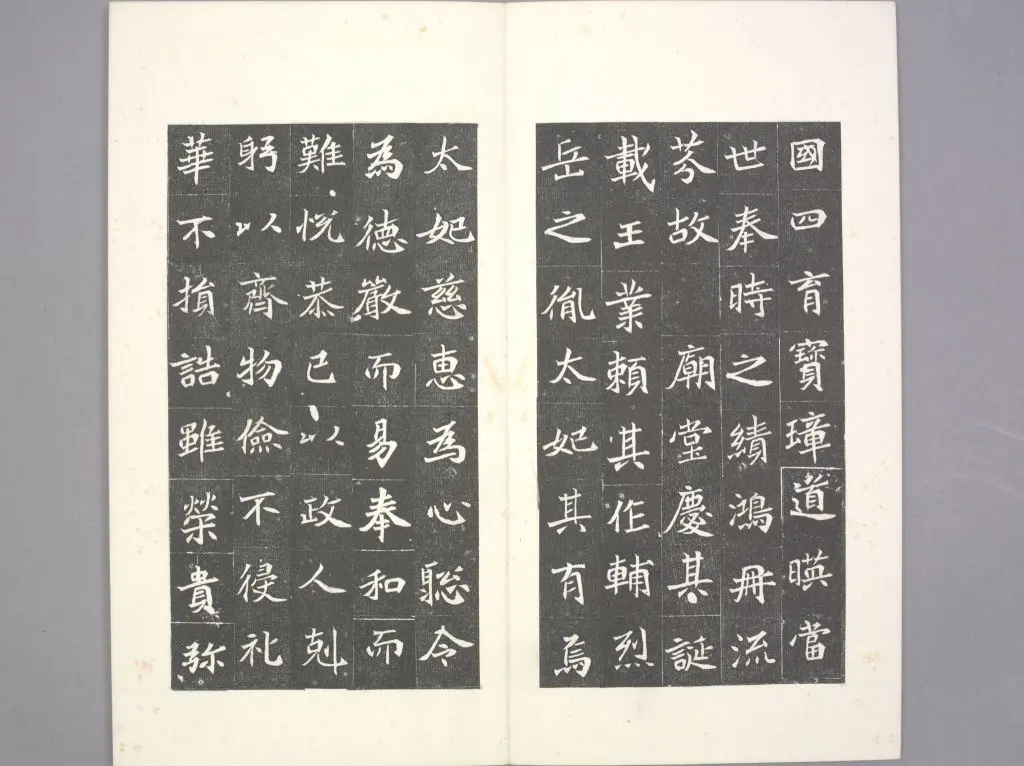 國四育寶璋道暎當
世奉時之績鴻冊流
芬故 廟堂慶其誕
載王業賴其作輔烈
岳之胤太妃其有焉
太妃慈惠為心聡令
為徳嚴而易奉和而
難恱恭已以政人剋
躬以齊物儉不侵礼
華不損誥雖榮貴弥